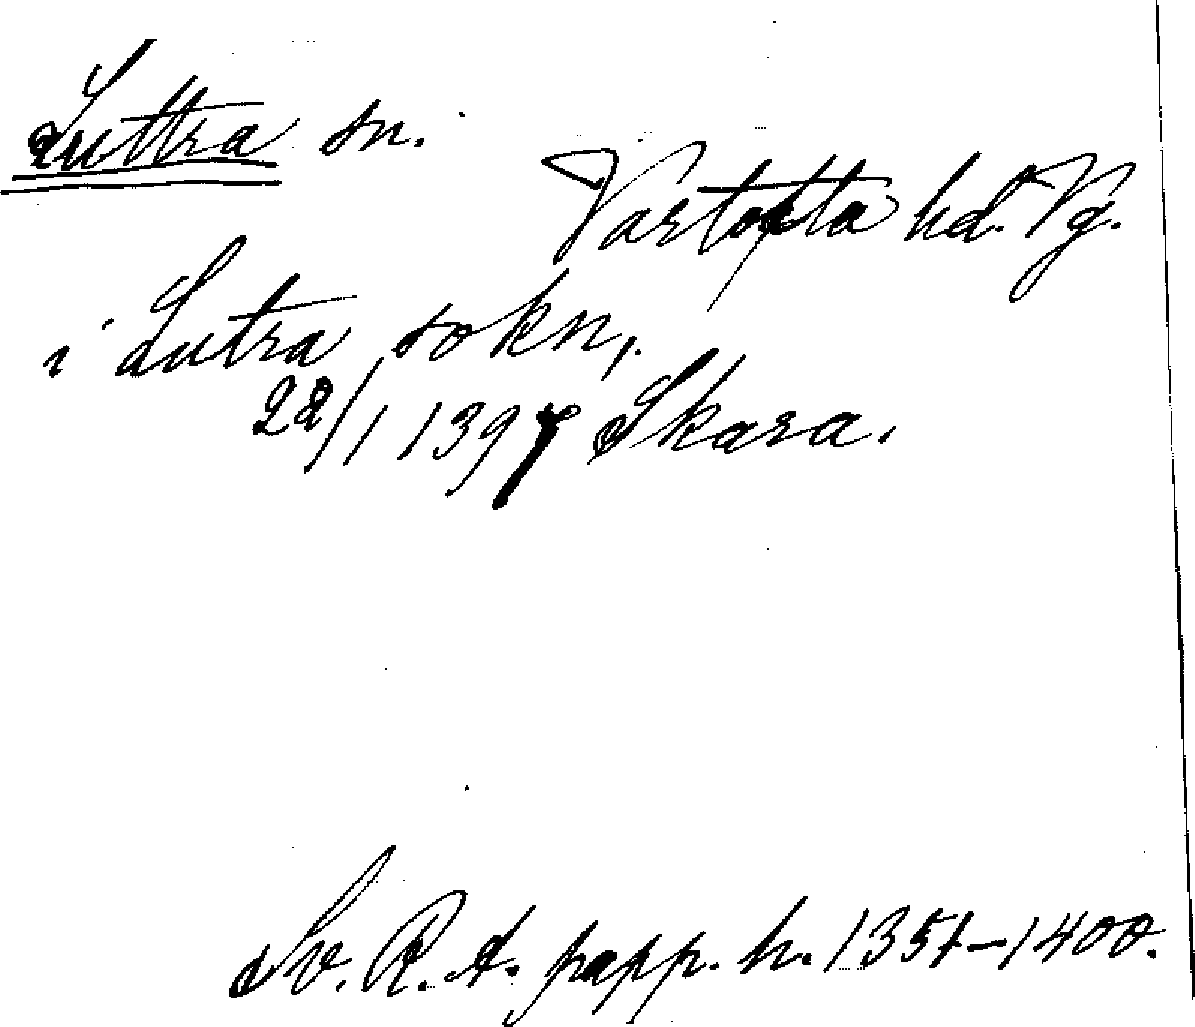 Luttra sn.
Vartofta hd. Vg.
i Lutra sokn,
22/1 1397 Skara.
Sv. R. A. papp. h. 1351-1400.